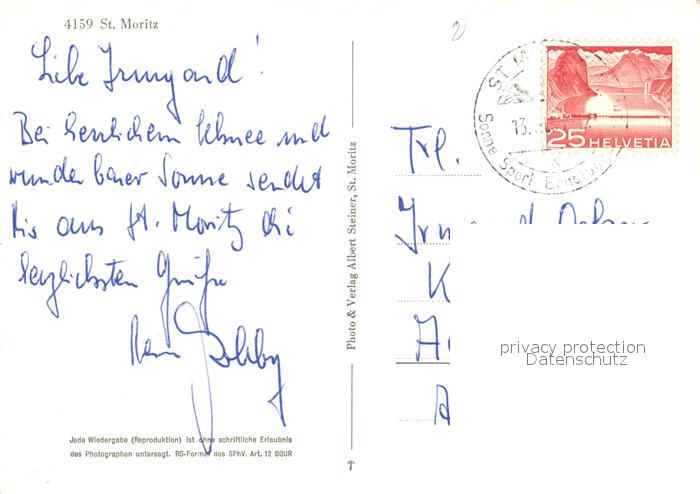 4159 St. Moritz
Liebe Irmgard!
Bei herrlichem Schnee und
wunderbarer Sonne sendet
Dir aus St. Moritz die
herzlichsten Grüße
Dein
Jede Wiedergabe (Reproduktion) ist ohne schriftliche Erlaubnis
des Photographen untersagt. RS-Formel des SPhV. Art. 12 BGUR
Photo & Verlag Albert Steiner, St. Moritz
ST. M
13.
Sonne Sport
25 HELVETIA
Frl.
K
A
privacy protection
Datenschutz